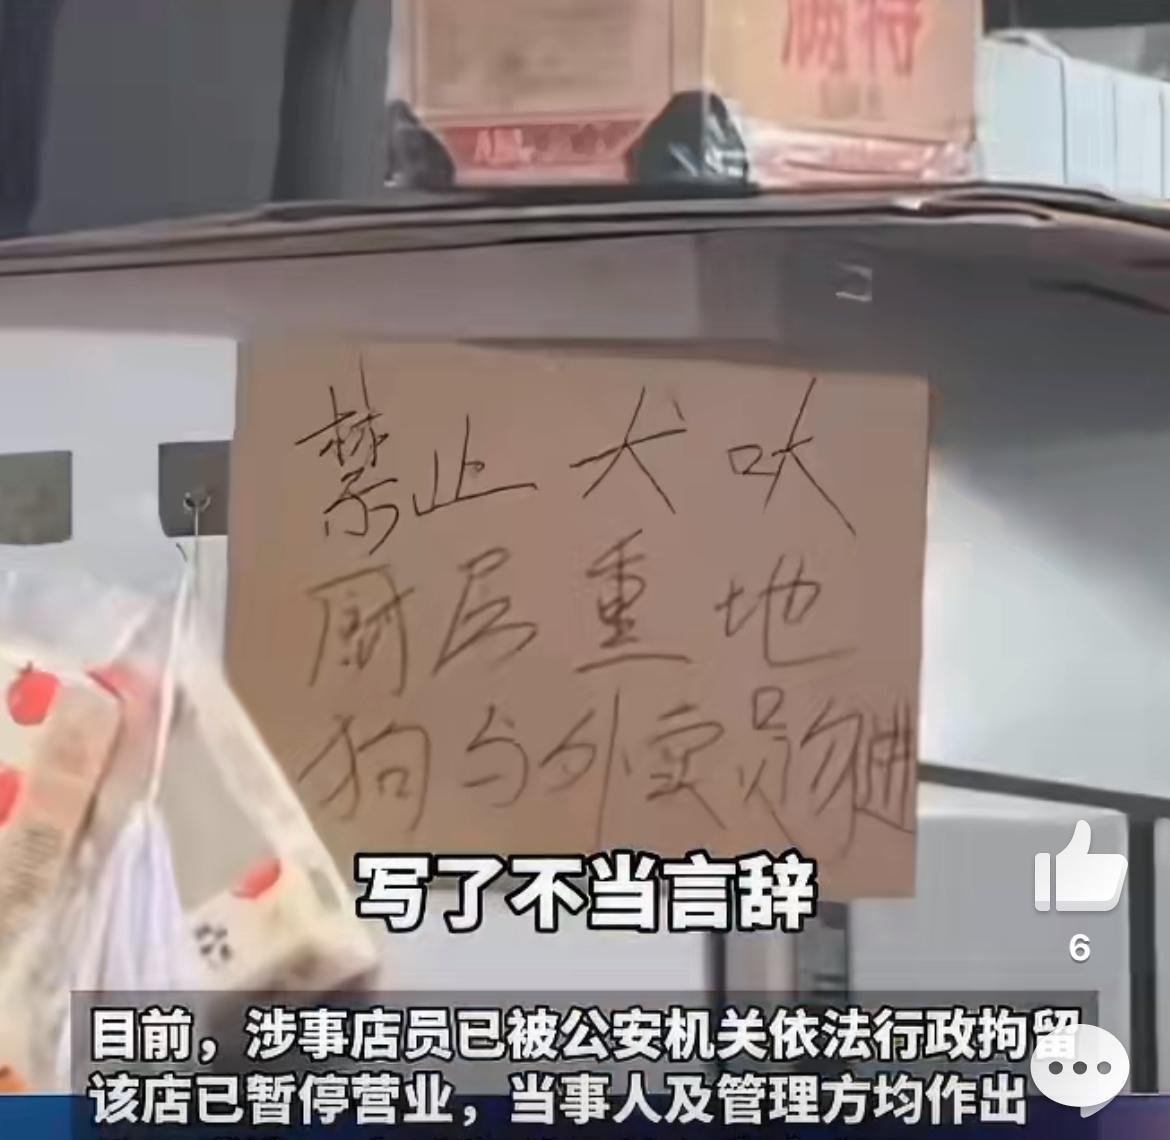 禁止犬吠
厨房重地
狗与外卖员勿进
写了不当言辞
6
目前，涉事店员已被公安机关依法行政拘留
该店已暂停营业，当事人及管理方均作出